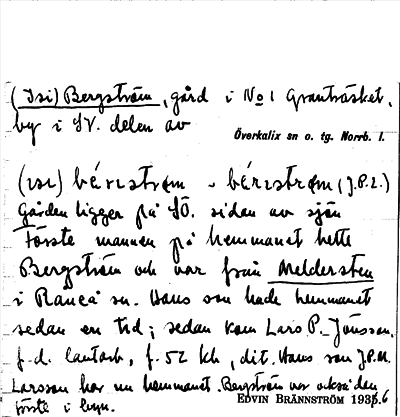 (Isi) Bergström, gård i No 1 Granträsket,
by i SV. delen av
Överkalix sn o. tg. Norrb. l.
(ɪsɪ) bérɪstrøm - bérɪstrøm (J.P.L.)
Gården ligger på SÖ. sidan av sjön
Förste mannen på hemmanet hette
Bergström och var från Meldersten
i Råneå sn. Hans son hade hemmanet
sedan en tid; sedan kom Lars P. Jönsson,
f.d. lantarb., f. 52 kh, dit. Hans son J.P.M.
Larsson har nu hemmanet. Bergström var också den
förste i byn.
EDVIN BRÄNNSTRÖM 1936